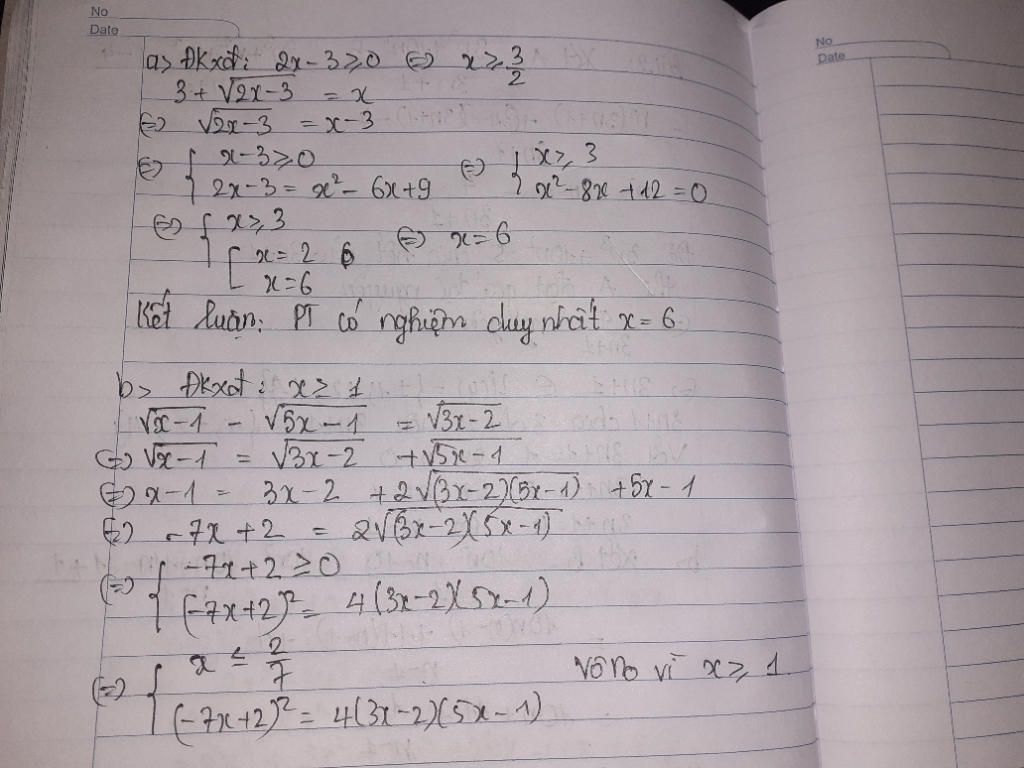 No
Date
No
Date
a> ĐKxđ: 2x-3 ≥ 0 ⇔ x ≥ 3/2
3 + √(2x-3) = x
⇔ √(2x-3) = x-3
⇔ { x-3 ≥ 0 ; 2x-3 = x² - 6x+9 ⇔ { x ≥ 3 ; x² - 8x + 12 = 0
⇔ { x ≥ 3 ; [ x = 2 ; x = 6 ⇔ x = 6
Kết luận: PT có nghiệm duy nhất x = 6
b> ĐKxđ: x ≥ 1
√(x-1) - √(5x-1) = √(3x-2)
⇔ √(x-1) = √(3x-2) + √(5x-1)
⇔ x-1 = 3x-2 + 2√((3x-2)(5x-1)) + 5x-1
⇔ -7x+2 = 2√((3x-2)(5x-1))
⇔ { -7x+2 ≥ 0 ; (-7x+2)² = 4(3x-2)(5x-1)
⇔ { x ≤ 2/7 ; (-7x+2)² = 4(3x-2)(5x-1) vô no vì x ≥ 1